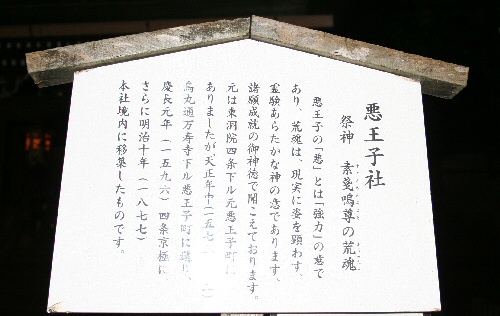 悪王子社
祭神 素戔嗚尊の荒魂
悪王子の「悪」とは「強力」の意で
あり、荒魂は、現実に姿を顕わす、
霊験あらたかな神の意であります、
諸願成就の御神徳で聞こえております。
元は東洞院四条下ル元悪王子町に
ありましたが、天正年中(一五七
烏丸通万寿寺下ル悪王子町に遷り、
慶長元年(一五九六)四条京極に
さらに明治十年(一八七七)
本社境内に移築したものです。